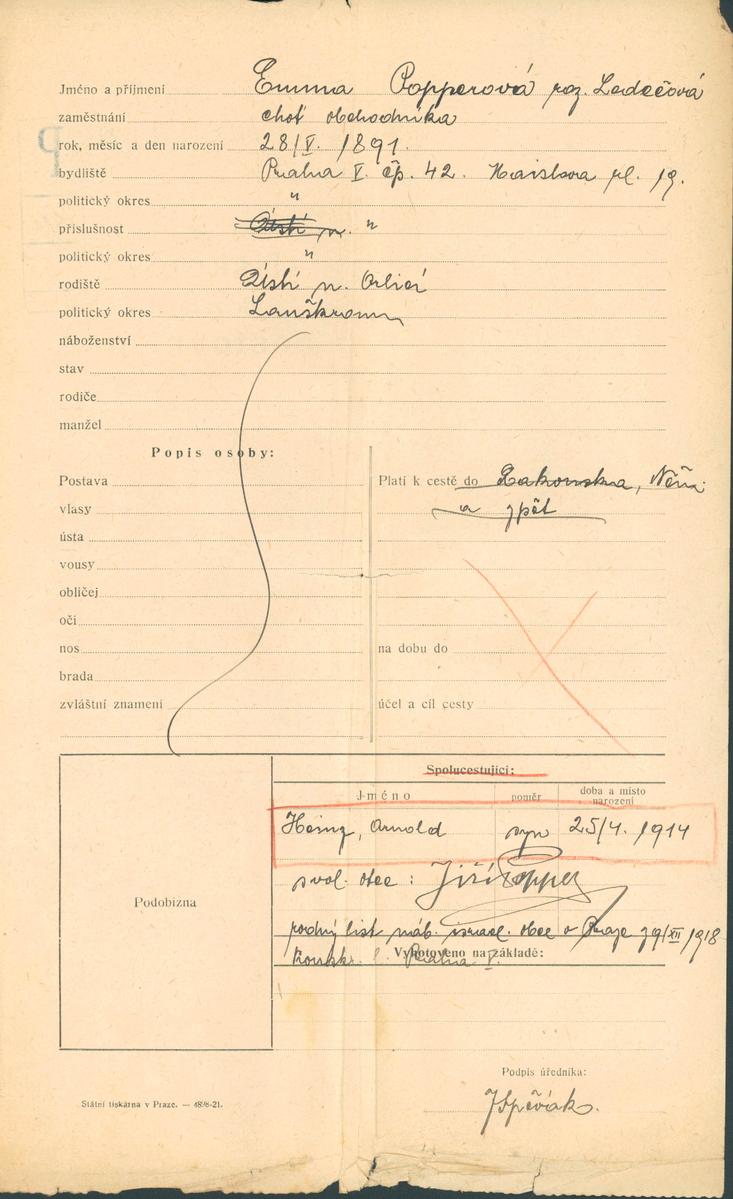 Jméno a příjmení Emma Popperová roz. Ledečová
zaměstnání choť obchodníka
rok, měsíc a den narození 28/V. 1891.
bydliště Praha V. čp. 42. Maislova pl. 19.
politický okres "
příslušnost Ústí n. "
politický okres "
rodiště Ústí n. Orlicí
politický okres Lanškroun
náboženství
stav
rodiče
manžel
Popis osoby:
Postava
vlasy
ústa
vousy
obličej
oči
nos
brada
zvláštní znamení
Platí k cestě do Rakouska, Něm.
a zpět
na dobu do
účel a cíl cesty
Spolucestující:
Jméno poměr doba a místo narození
Heinz, Arnold syn 25/4. 1914
svol. otce: Jiří Popper
rodný list náb. israel. obce v Praze 29/XII 1918
konskr. Praha V.
Vyhotoveno na základě:
Podobizna
Podpis úředníka:
JSpěvák.
Státní tiskárna v Praze. — 4898-21.
P